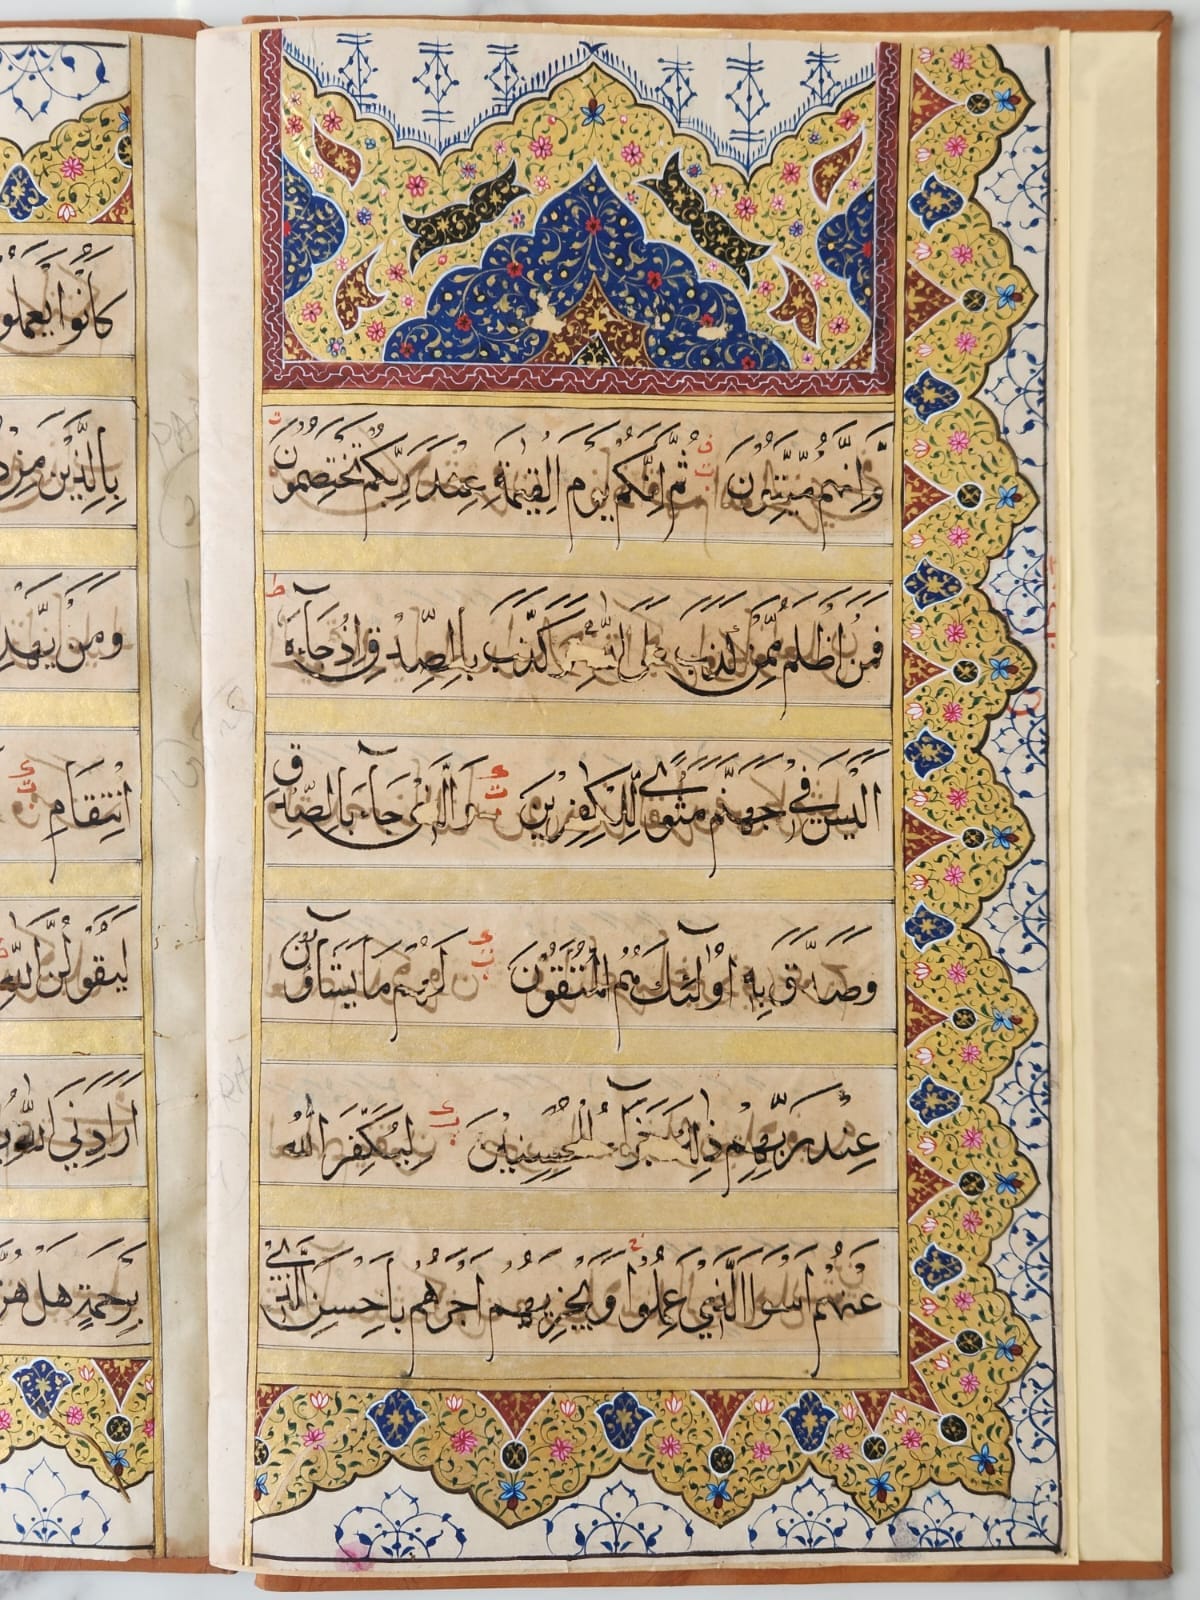 وَّاِنَّهُمْ مَّيِّتُوْنَ ثُمَّ اِنَّكُمْ يَوْمَ الْقِيٰمَةِ عِنْدَ رَبِّكُمْ تَخْتَصِمُوْنَ
فَمَنْ اَظْلَمُ مِمَّنْ كَذَبَ عَلَى اللّٰهِ وَكَذَّبَ بِالصِّدْقِ اِذْ جَآءَهٗ
اَلَيْسَ فِيْ جَهَنَّمَ مَثْوًى لِّلْكٰفِرِيْنَ وَالَّذِيْ جَآءَ بِالصِّدْقِ
وَصَدَّقَ بِهٖٓ اُولٰٓئِكَ هُمُ الْمُتَّقُوْنَ لَهُمْ مَّا يَشَآءُوْنَ
عِنْدَ رَبِّهِمْ ذٰلِكَ جَزٰٓؤُا الْمُحْسِنِيْنَ لِيُكَفِّرَ اللّٰهُ
عَنْهُمْ اَسْوَاَ الَّذِيْ عَمِلُوْا وَيَجْزِيَهُمْ اَجْرَهُمْ بِاَحْسَنِ الَّذِيْ
كَانُوْا يَعْمَلُو
بِالَّذِيْنَ مِنْ د
وَمَنْ يَّهْدِ
انْتِقَامٍ
لَيَقُوْلُنَّ اللّٰهُ
اَرَادَنِيَ اللّٰهُ
بِرَحْمَةٍ هَلْ هُنَّ